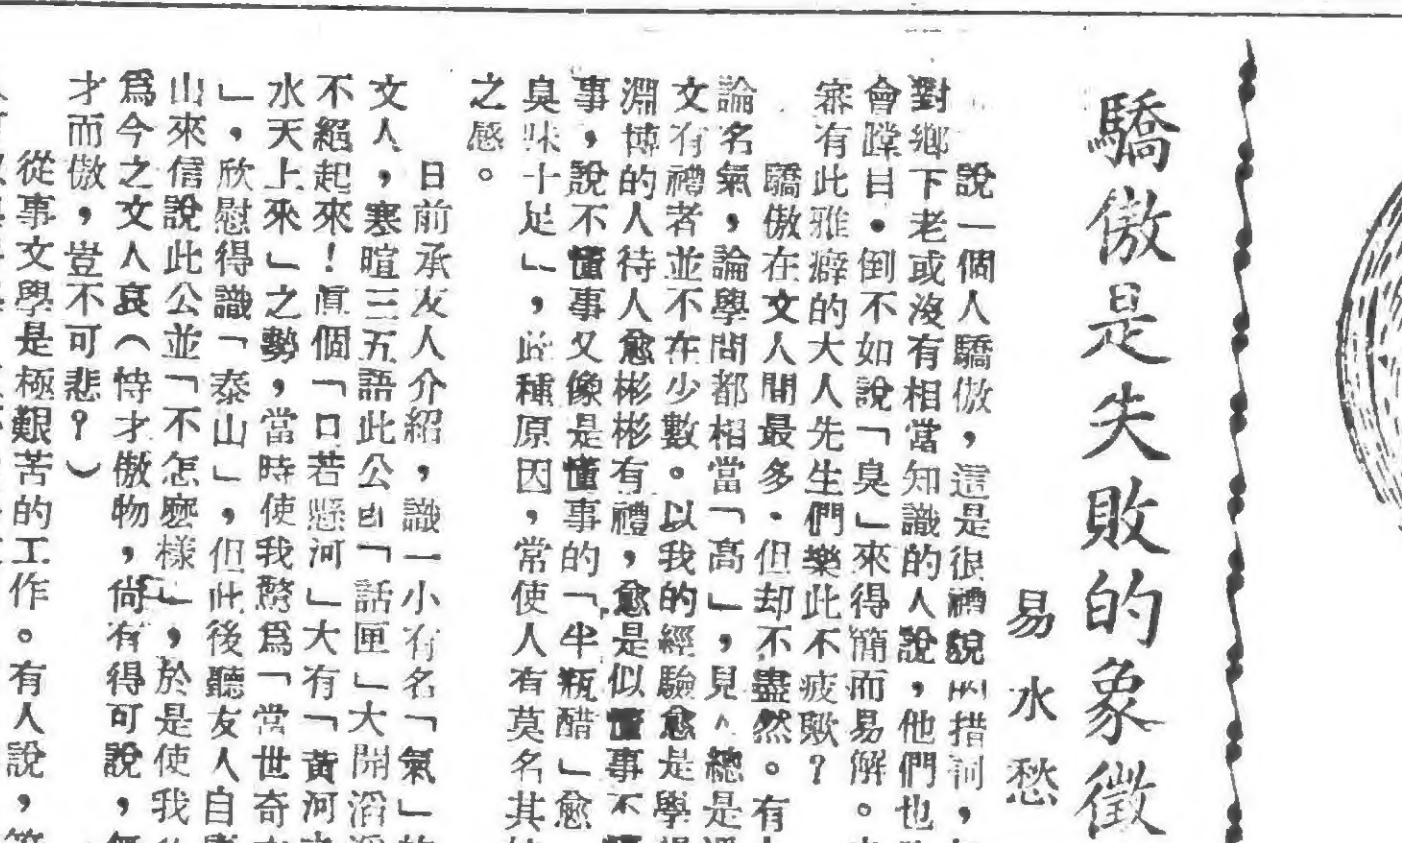 驕傲是失敗的象徵
易水愁
說一個人驕傲，這是很禮貌的措詞，
對鄉下老或沒有相當知識的人說，他們也
會瞠目。倒不如說「臭」來得簡而易解。
審有此雅癖的大人先生們樂此不疲歟？
驕傲在文人間最多。但却不盡然。有
論名氣，論學問都相當「高」，見人總是
文有禮者並不在少數。以我的經驗愈是學
淵博的人待人愈彬彬有禮，愈是似懂事不
事，說不懂事又像是懂事的「半瓶醋」愈
臭味十足」，此種原因，常使人有莫名其
之感。
日前承友人介紹，識一小有名「氣」的
文人，寒暄三五語此公的「話匣」大開滔
不絕起來！眞個「口若懸河」大有「黃河
水天上來」之勢，當時使我驚爲「當世奇
」，欣慰得識「泰山」，但此後聽友人自
山來信說此公並「不怎麽樣」，於是使我
爲今之文人哀（恃才傲物，尙有得可說，無
才而傲，豈不可悲？）
從事文學是極艱苦的工作。有人說，